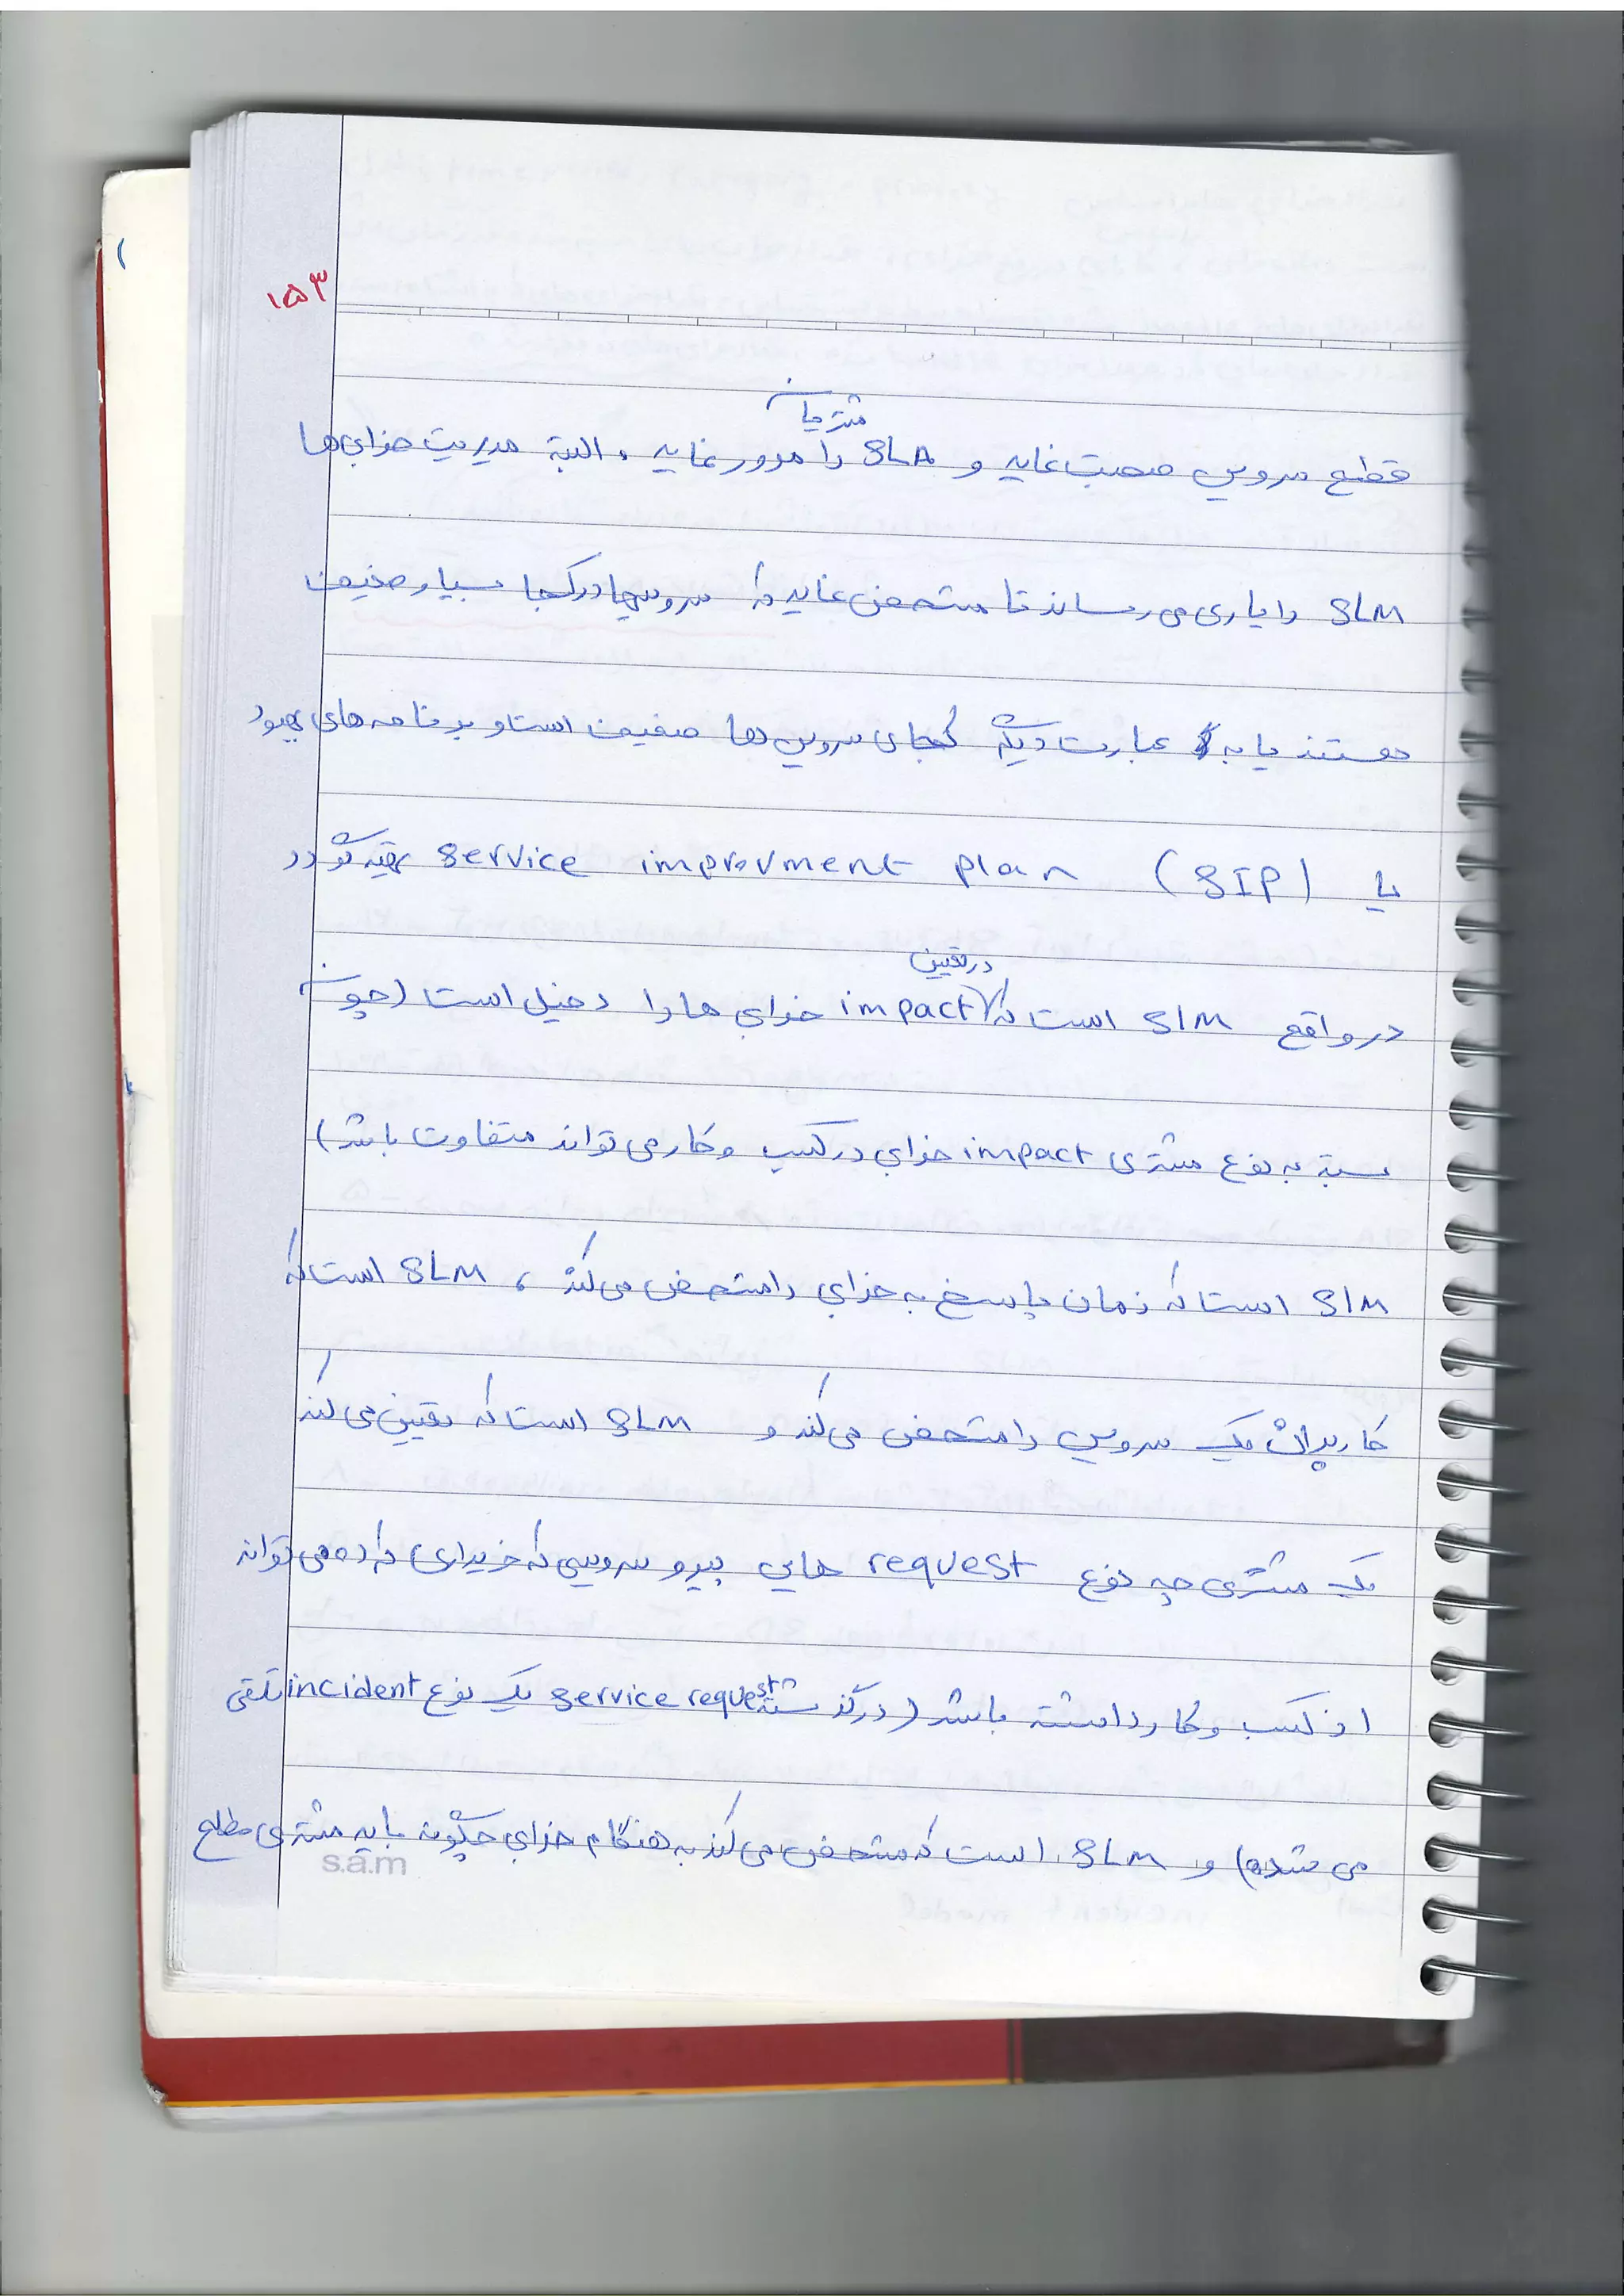 ۱۵۳
مشتریان
قطع سرویس صحبت نماید و SLA را مرور نماید، البته مدیریت خرابی‌ها
SLM را یاری می‌رساند تا مشخص نماید که سرویسها در کجا بسیار ضعیف
هستند یا به عبارت دیگر کجای سرویس‌ها ضعیف است و برنامه‌های بهبود
یا (SIP) service improvment plan تهیه گردد
در تعیین
در واقع SLM است که impact خرابی ها را دخیل است (چون
بسته به نوع مشتری impact خرابی در کسب و کار می تواند متفاوت باشد)
SLM است که زمان پاسخ به خرابی را مشخص می‌کند، SLM است که
کاربران یک سرویس را مشخص می‌کند و SLM است که تعیین می‌کند
یک مشتری چه نوع request هایی پیرو سرویسی که خریداری کرده می تواند
از کسب و کار داشته باشد (در گذشته service request یک نوع incident تلقی
می شده) و SLM است که مشخص می‌کند به هنگام خرابی چگونه باید مشتری مطلع
s.a.m